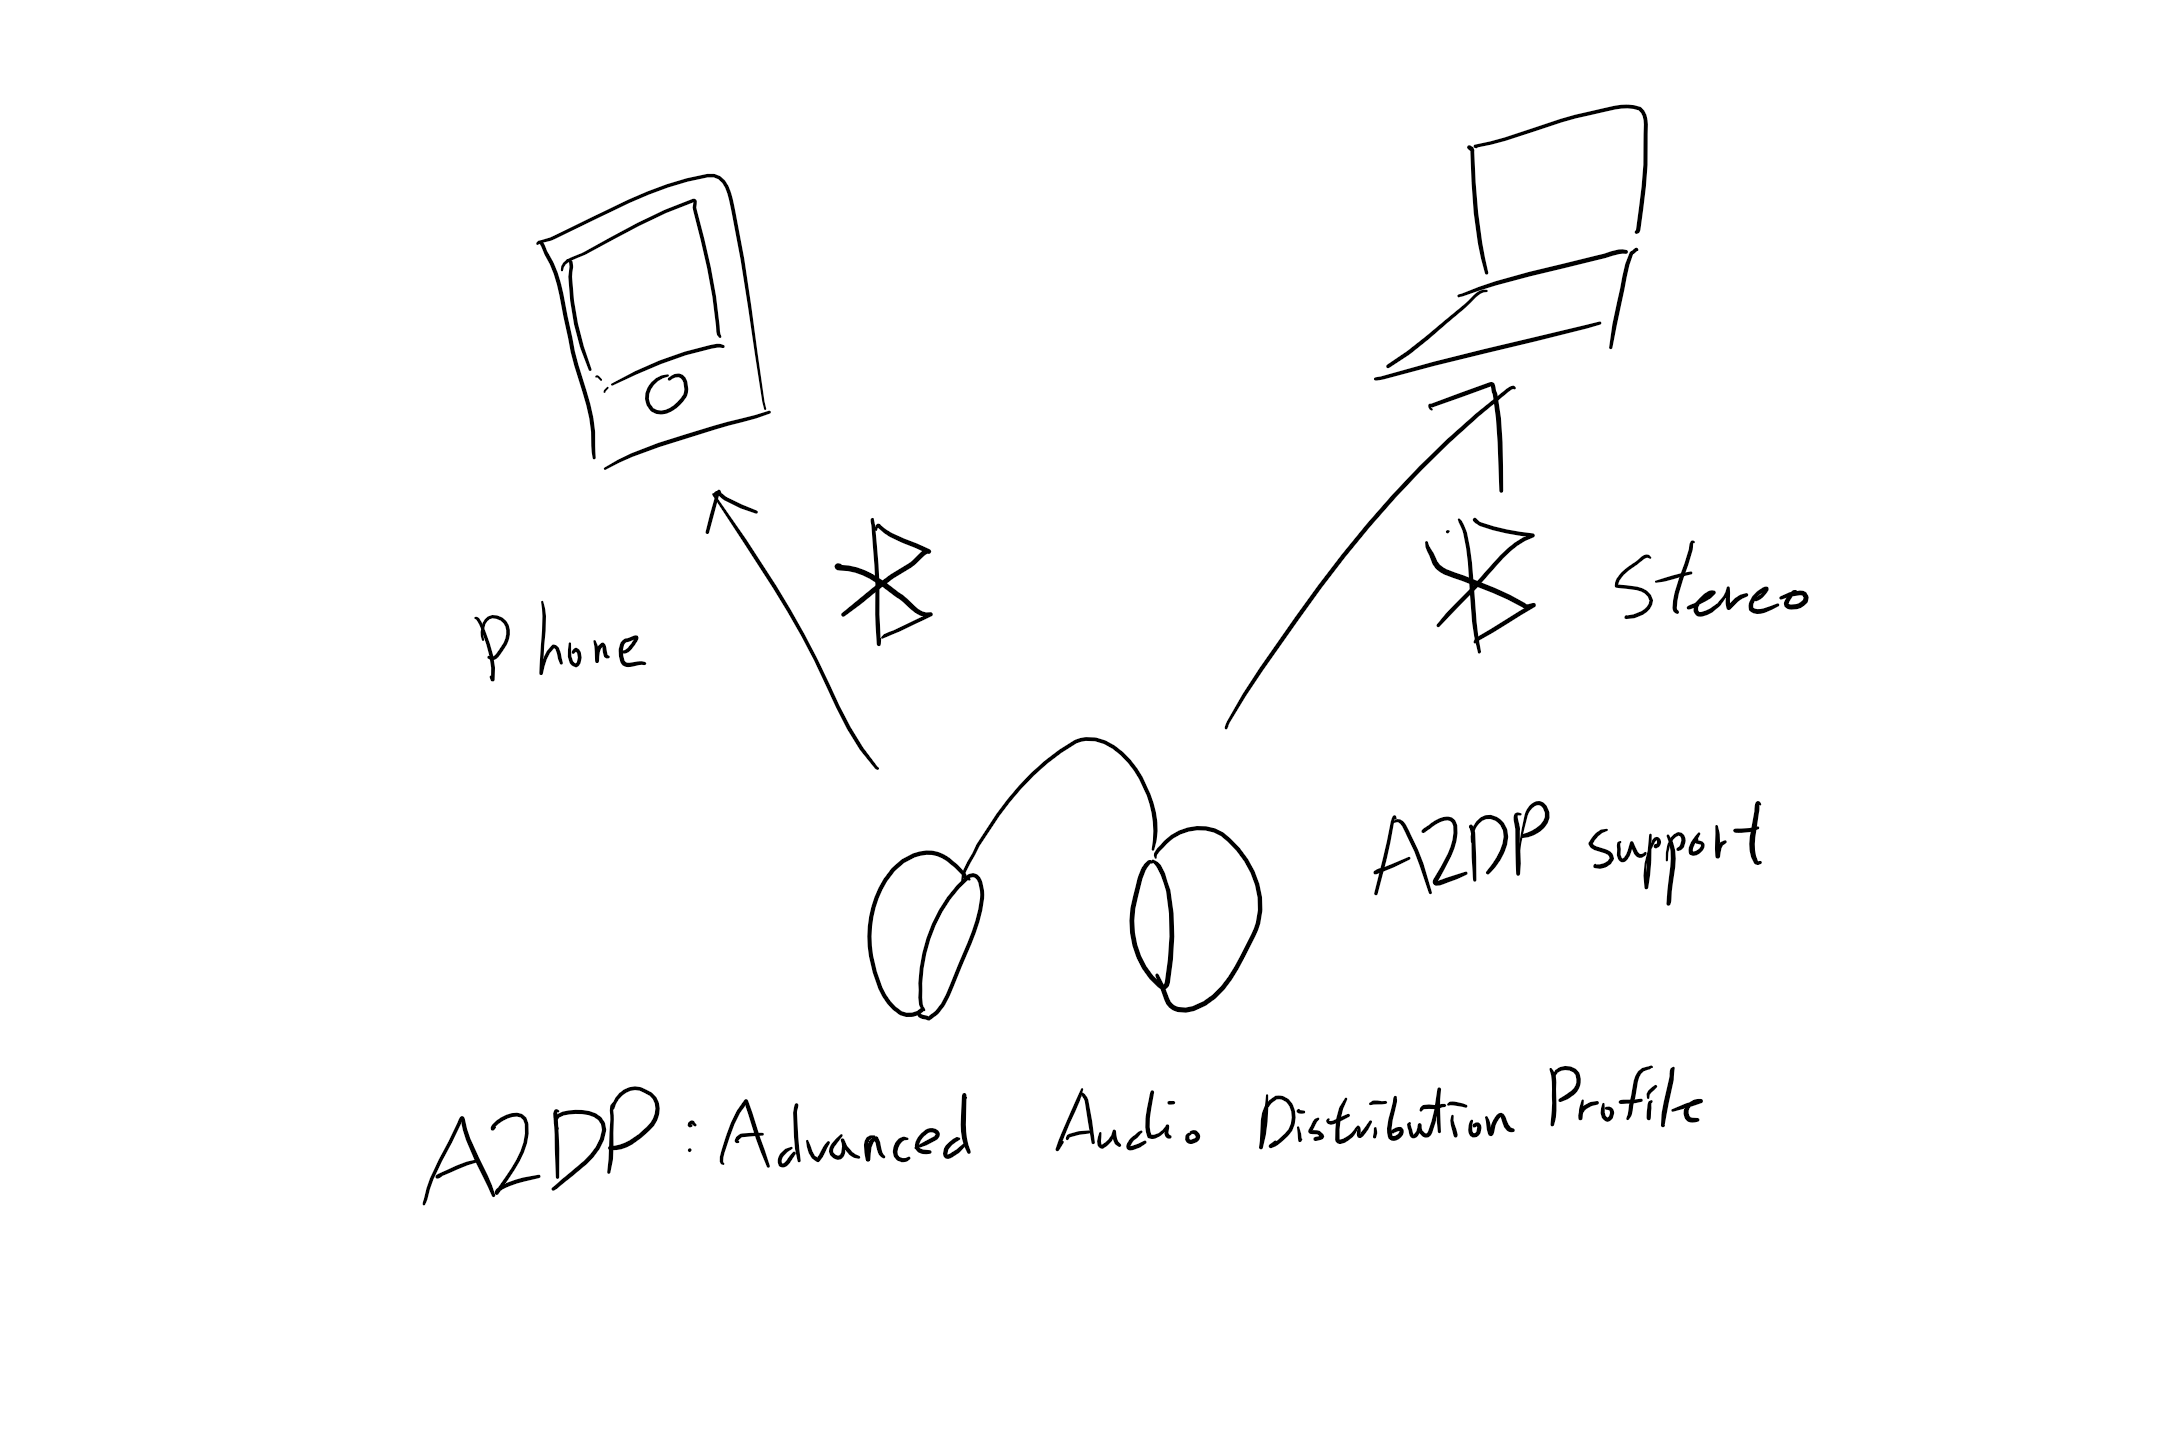 Phone
Stereo
A2DP support
A2DP: Advanced Audio Distribution Profile